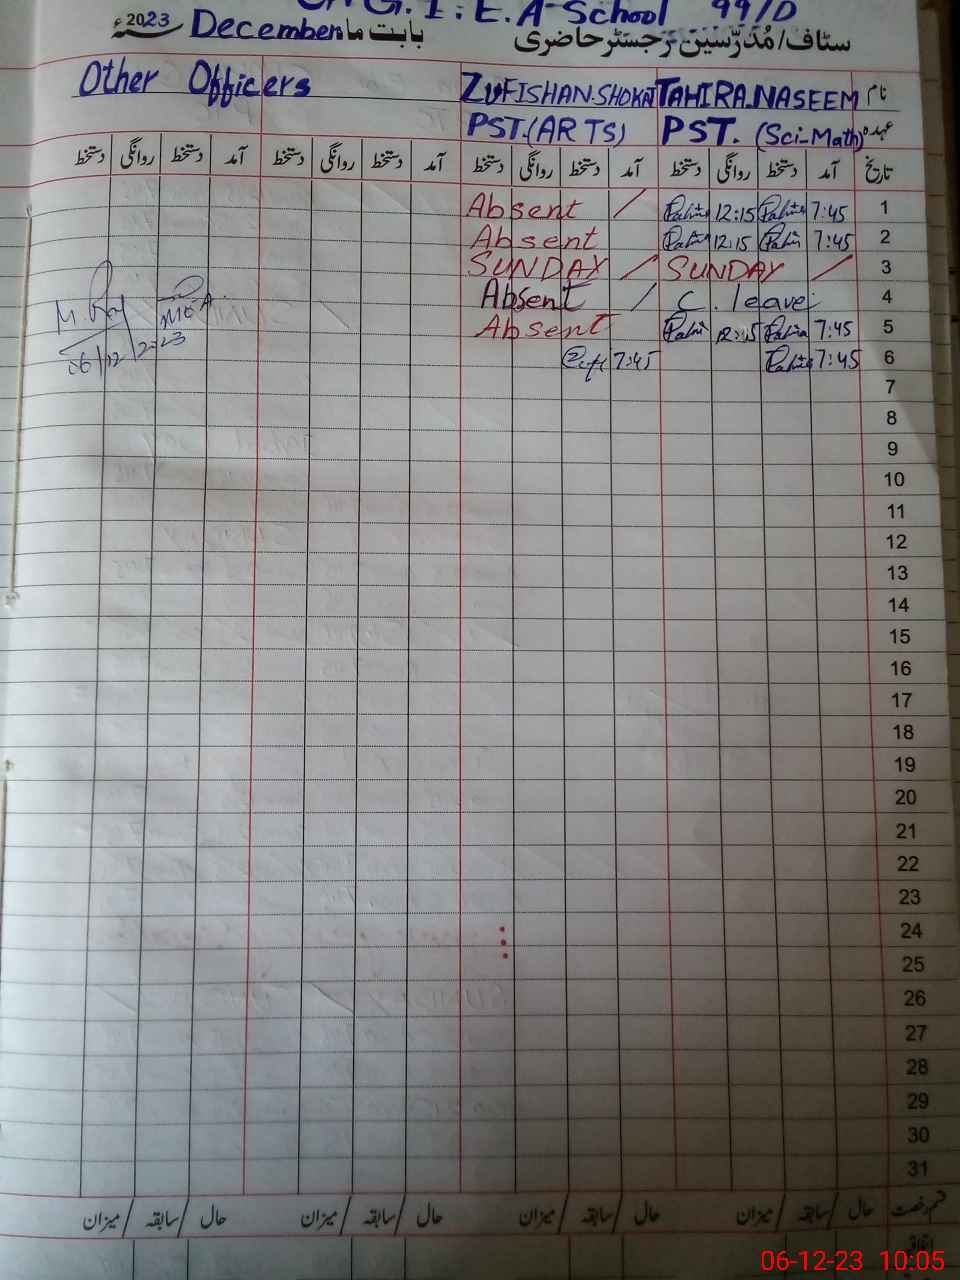 G.I.E.A-School 99/D
سٹاف/مُدَرِّسین رجسٹر حاضری بابت ماہ December 2023ء
نام TAHIRA.NASEEM ZUFISHAN.SHOKAT Other Officers
عہدہ PST. (Sci-Math) PST.(ARTS)
تاریخ آمد دستخط روانگی دستخط آمد دستخط روانگی دستخط آمد دستخط روانگی دستخط آمد دستخط روانگی دستخط
1 7:45 12:15 / Absent
2 7:45 12:15 Absent
3 SUNDAY / SUNDAY /
4 C. leave / Absent
5 7:45 12:15 Absent
6 7:45 7:45
06/12/2023
7
8
9
10
11
12
13
14
15
16
17
18
19
20
21
22
23
24
25
26
27
28
29
30
31
قسم رخصت حال / سابقہ / میزان حال / سابقہ / میزان حال / سابقہ / میزان حال / سابقہ / میزان
اتفاقیہ
06-12-23 10:05